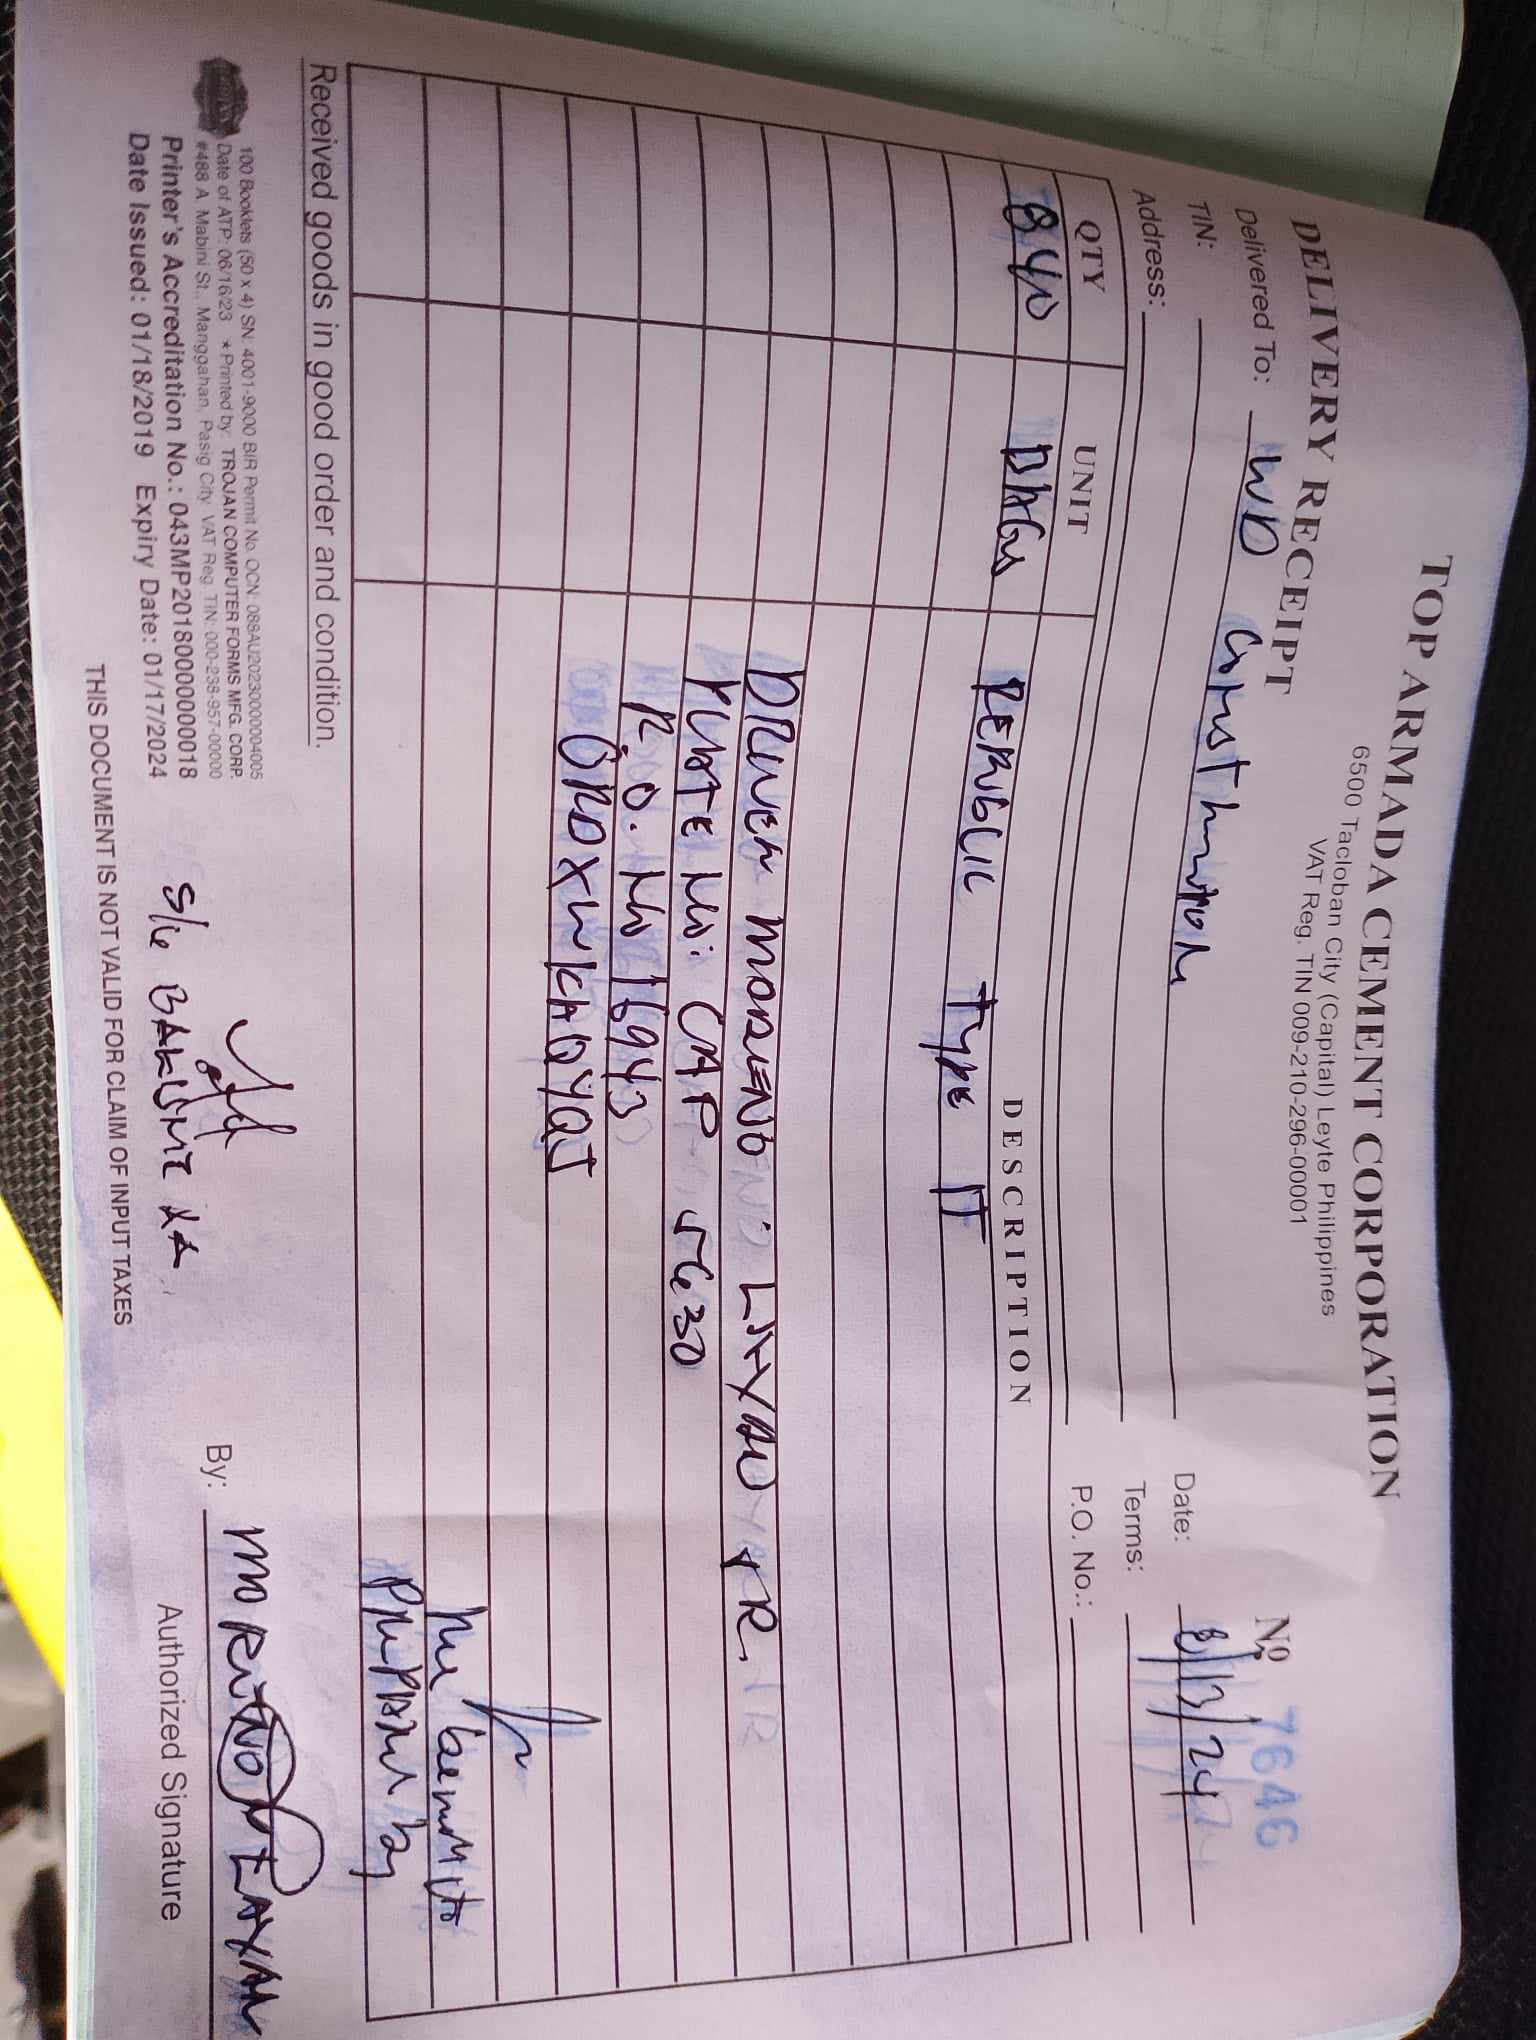 TOP ARMADA CEMENT CORPORATION
6500 Tacloban City (Capital) Leyte Philippines
VAT Reg. TIN 009-210-296-00001
DELIVERY RECEIPT
Nº 7646
Delivered To: WD Construction
Date: 8/13/24
TIN:
Terms:
Address:
P.O. No.:
QTY UNIT DESCRIPTION
840 BAGS REPUBLIC TYPE 1T
DRIVER MODESTO JR.
PLATE No: CAP 5630
P.O. No 16943
ORDXWKAQYQJ
Prepared by
Received goods in good order and condition.
100 Booklets (50 x 4) SN: 4001-9000 BIR Permit No. OCN: 088AU20230000004005
Date of ATP: 06/16/23 *Printed by: TROJAN COMPUTER FORMS MFG. CORP.
#488 A. Mabini St., Manggahan, Pasig City VAT Reg. TIN: 000-238-957-00000
Printer's Accreditation No.: 043MP20180000000018
Date Issued: 01/18/2019 Expiry Date: 01/17/2024
S/G
By:
Authorized Signature
THIS DOCUMENT IS NOT VALID FOR CLAIM OF INPUT TAXES